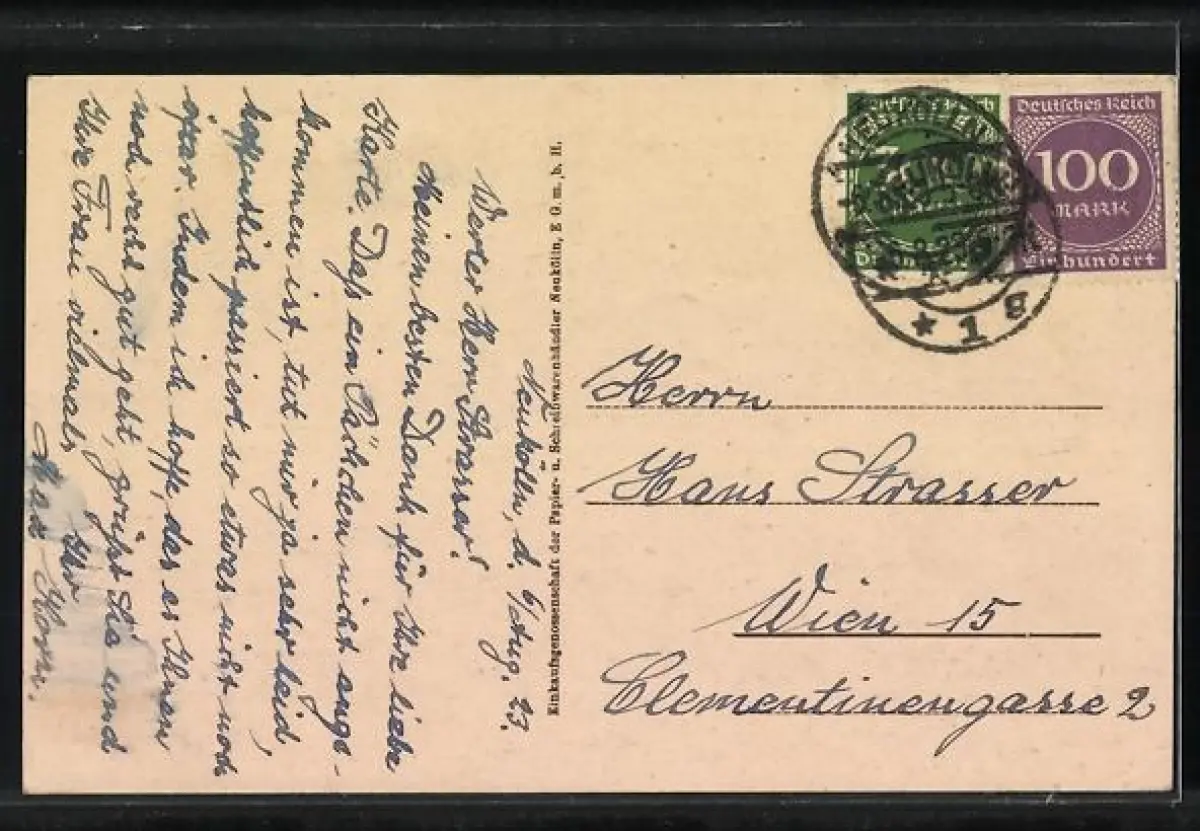 Neukölln, d. 6/Aug. 23.
Werter Herr Strasser!
Meinen besten Dank für Ihre liebe
Karte. Daß ein Päckchen nicht ange-
kommen ist, tut mir ja sehr leid,
hoffentlich passiert so etwas nicht noch
öfter. Indem ich hoffe, das es Ihnen
noch recht gut geht, grüßt Sie und
Ihre Frau vielmals
Ihr
Max
Einkaufsgenossenschaft der Papier- u. Schreibwarenhändler Neukölln, E G. m. b. H.
Deutsches Reich
100
MARK
Einhundert
* 1 g
Herrn
Hans Strasser
Wien 15
Clementinengasse 2